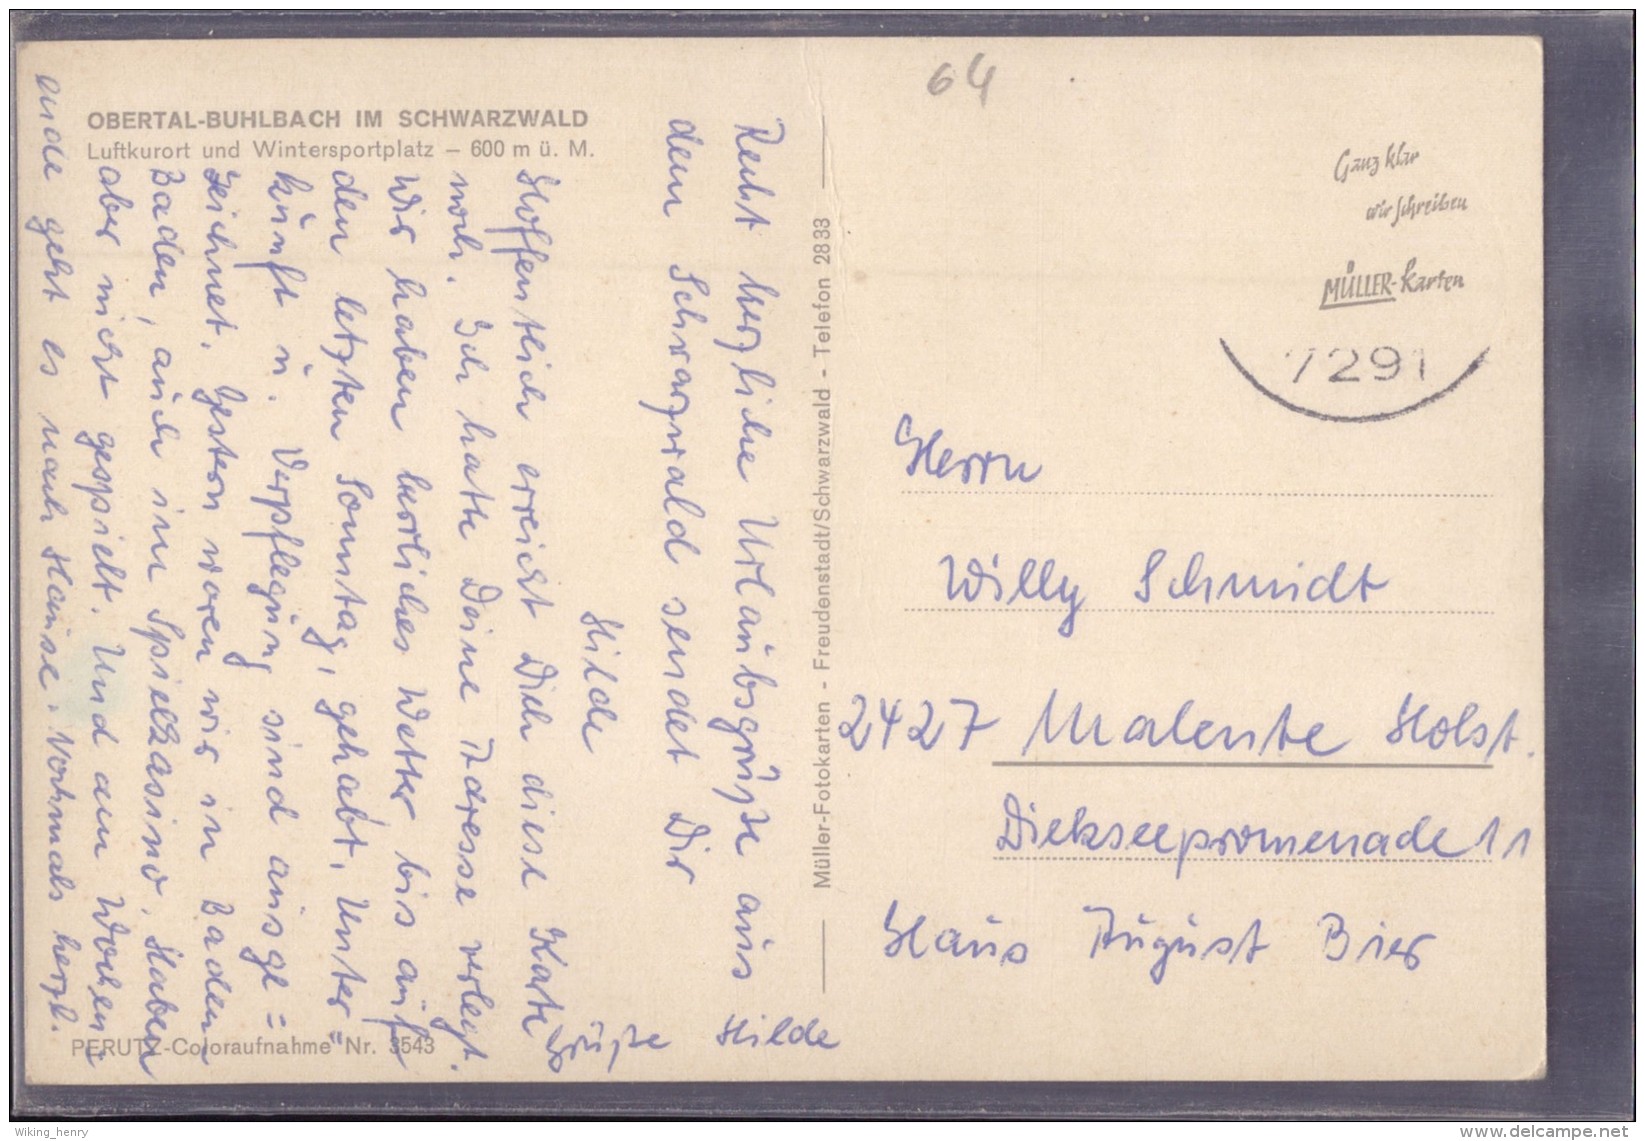 64
OBERTAL-BUHLBACH IM SCHWARZWALD
Luftkurort und Wintersportplatz – 600 m ü. M.
Recht herzliche Urlaubsgrüße aus
dem Schwarzwald sendet Dir
Hilde
Hoffentlich erreicht Dich diese Karte
noch. Ich hatte Deine Adresse verlegt.
Wir haben herrliches Wetter bis auf
den letzten Sonntag, gehabt. Unter=
künft u. Verpflegung sind ausge=
zeichnet. Gestern waren wir in Baden
Baden, auch im Spielkasino. Haben
aber nicht gespielt. Und am Wochen=
ende geht es nach Hause. Nochmals herzl.
Grüße Hilde
PERUTZ-Coloraufnahme Nr. 3543
Müller-Fotokarten - Freudenstadt/Schwarzwald - Telefon 2833
Ganz klar
wir schreiben
MÜLLER-Karten
7291
Herrn
Willy Schmidt
2427 Malente Holst.
Diekseepromenade 11
Haus August Bier
Wiking_henry
www.delcampe.net